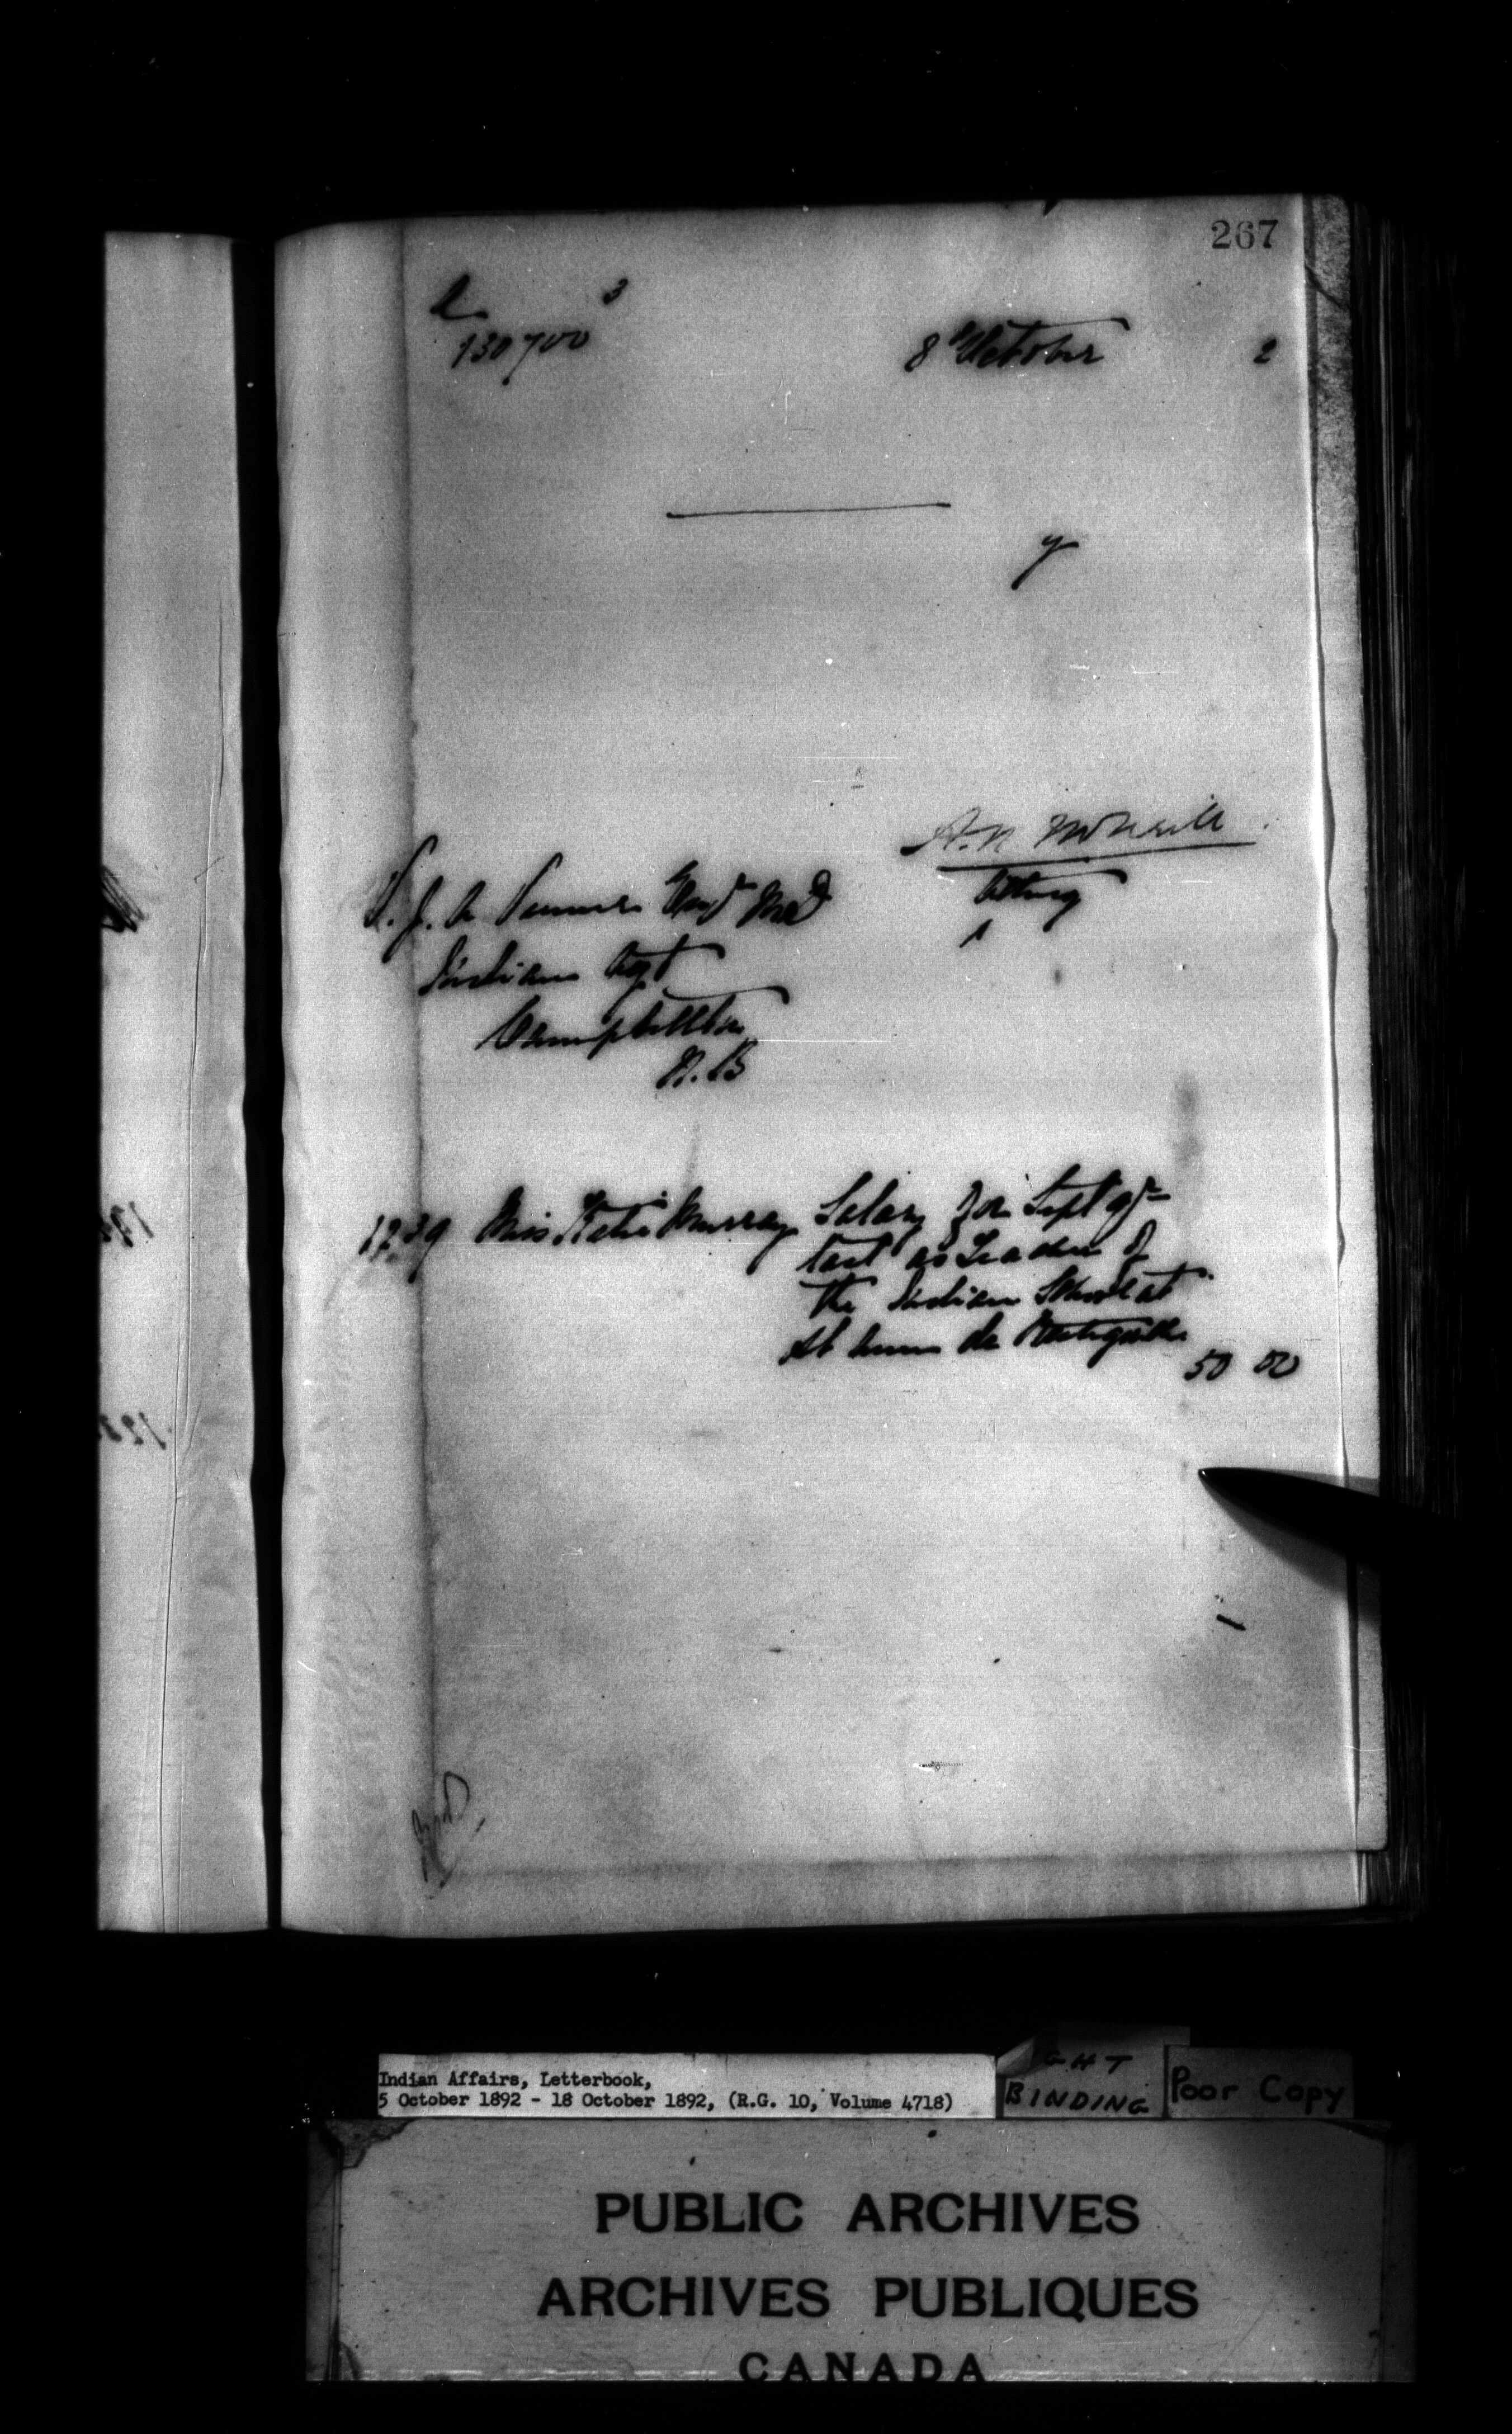 267
L 3
130700
8 October 2
y
A.N. McNeill
Acting
1
V. J. A. Venner Esqr M.D
Indian Agt
Campbellton
N.B
1239 Miss Katie Murray Salary for Sept qr
last as Teacher of
the Indian School at
St Anne de Restigouche
50 00
Indian Affairs, Letterbook,
5 October 1892 - 18 October 1892, (R.G. 10, Volume 4718)
BINDING
Poor Copy
PUBLIC ARCHIVES
ARCHIVES PUBLIQUES
CANADA